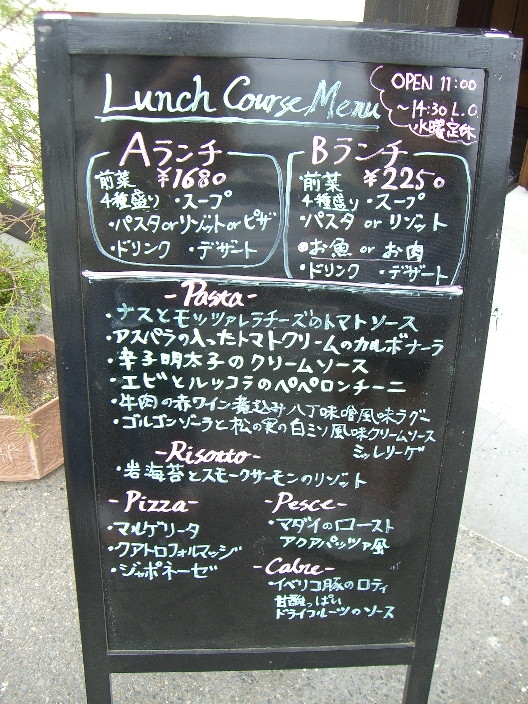 Lunch Course Menu
OPEN 11:00
~14:30 L.O.
水曜定休
Aランチ
前菜 ¥1680
4種盛り ・スープ
・パスタ or リゾット or ピザ
・ドリンク ・デザート
Bランチ
前菜 ¥2250
4種盛り ・スープ
・パスタ or リゾット
・お魚 or お肉
・ドリンク ・デザート
-Pasta-
・ナスとモッツァレラチーズのトマトソース
・アスパラの入ったトマトクリームのカルボナーラ
・辛子明太子のクリームソース
・エビとルッコラのペペロンチーニ
・牛肉の赤ワイン煮込み八丁味噌風味ラグー
・ゴルゴンゾーラと松の実の白ミソ風味クリームソース
ミルリーゲ
-Risotto-
・岩海苔とスモークサーモンのリゾット
-Pizza-
・マルゲリータ
・クアトロフォルマッジ
・ジャポネーゼ
-Pesce-
・マダイのロースト
アクアパッツァ風
-Cabre-
・イベリコ豚のロティ
甘酸っぱい
ドライフルーツのソース